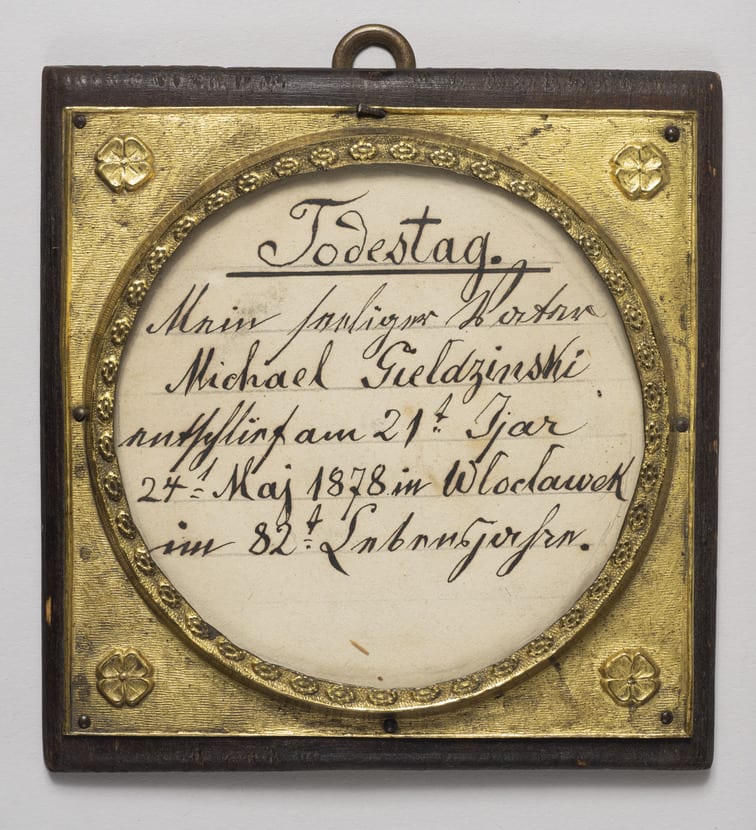 Todestag.
Mein seeliger Vater
Michael Gieldzinski
entschlief am 21t Ijar
24t Maj 1878 in Wloclawek
im 82t Lebensjahre.